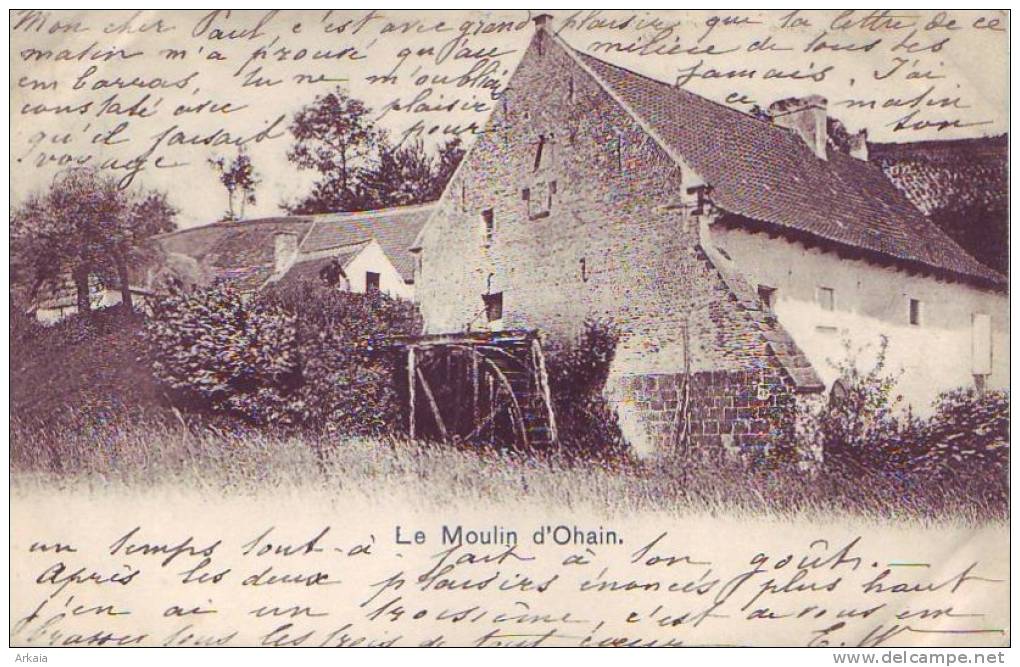 Mon cher Paul c'est avec grand plaisir que ta lettre de ce
matin m'a prouvé qu'au milieu de tous tes
embarras, tu ne m'oublias jamais. J'ai
constaté avec plaisir ce matin
qu'il faisait pour ton
voyage
Le Moulin d'Ohain.
un temps tout-à-fait à ton goût.
Après les deux plaisirs énoncés plus haut
j'en ai un troisième, c'est de vous em
brasser tous les trois de tout coeur E. W
Arkaia
www.delcampe.net